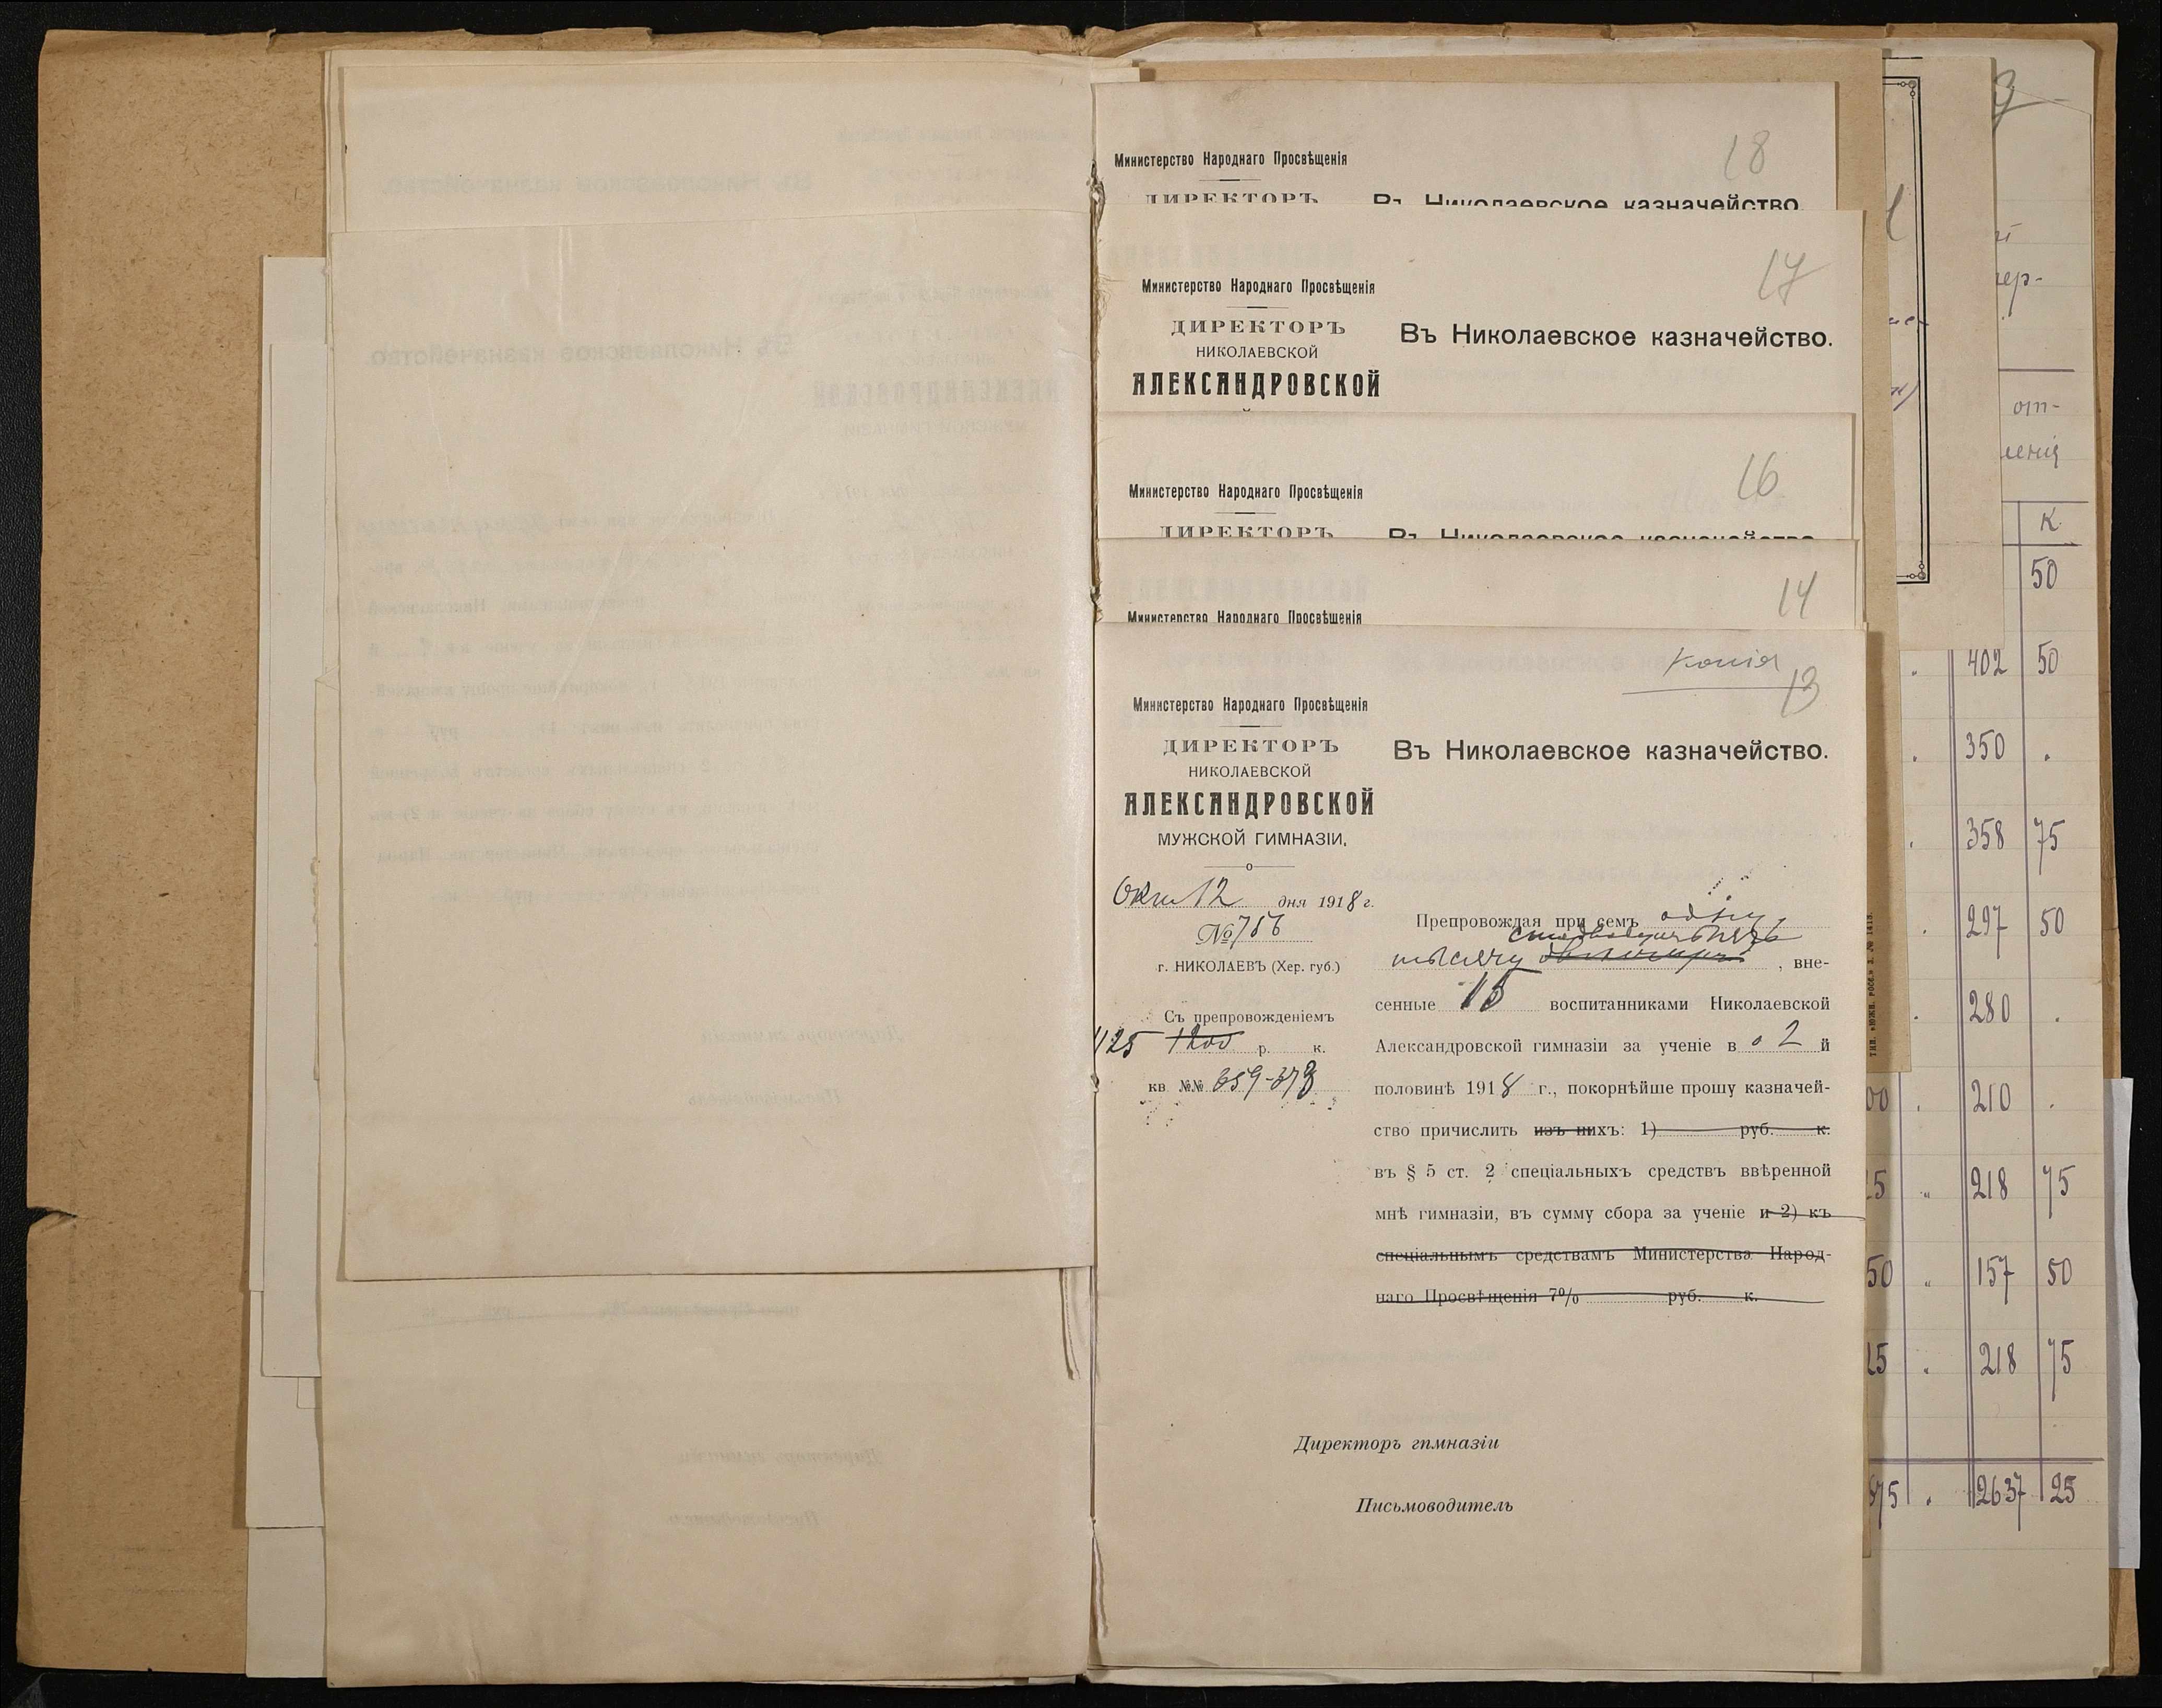 18
Министерство Народнаго Просвѣщенія
ДИРЕКТОРЪ
Въ Николаевское казначейство.
17
Министерство Народнаго Просвѣщенія
ДИРЕКТОРЪ
НИКОЛАЕВСКОЙ
АЛЕКСАНДРОВСКОЙ
Въ Николаевское казначейство.
16
Министерство Народнаго Просвѣщенія
ДИРЕКТОРЪ
Въ Николаевское казначейство
14
Министерство Народнаго Просвѣщенія
Копія
13
Министерство Народнаго Просвѣщенія
ДИРЕКТОРЪ
НИКОЛАЕВСКОЙ
АЛЕКСАНДРОВСКОЙ
МУЖСКОЙ ГИМНАЗІИ.
Окт 12 дня 1918 г.
№ 756
г. НИКОЛАЕВЪ (Хер. губ.)
Съ препровожденіемъ
1125 1200 р. к.
кв №№ 359-373
Въ Николаевское казначейство.
Препровождая при семъ одну
сто двадцать пять
тысячу , вне-
сенные 15 воспитанниками Николаевской
Александровской гимназіи за ученіе в о 2 й
половинѣ 1918 г., покорнѣйше прошу казначей-
ство причислить изъ нихъ: 1) руб. к.
въ § 5 ст. 2 спеціальныхъ средствъ ввѣренной
мнѣ гимназіи, въ сумму сбора за ученіе и 2) къ
спеціальнымъ средствамъ Министерства Народ-
наго Просвѣщенія 7% руб. к.
Директоръ гимназіи
Письмоводитель
тип. «ЮЖН. РОСС.» з. № 1413.
от-
ленія
К.
50
402 50
350 .
358 75
297 50
280 .
00 . 210 .
25 " 218 75
50 " 157 50
25 . 218 75
975 . 2637 25